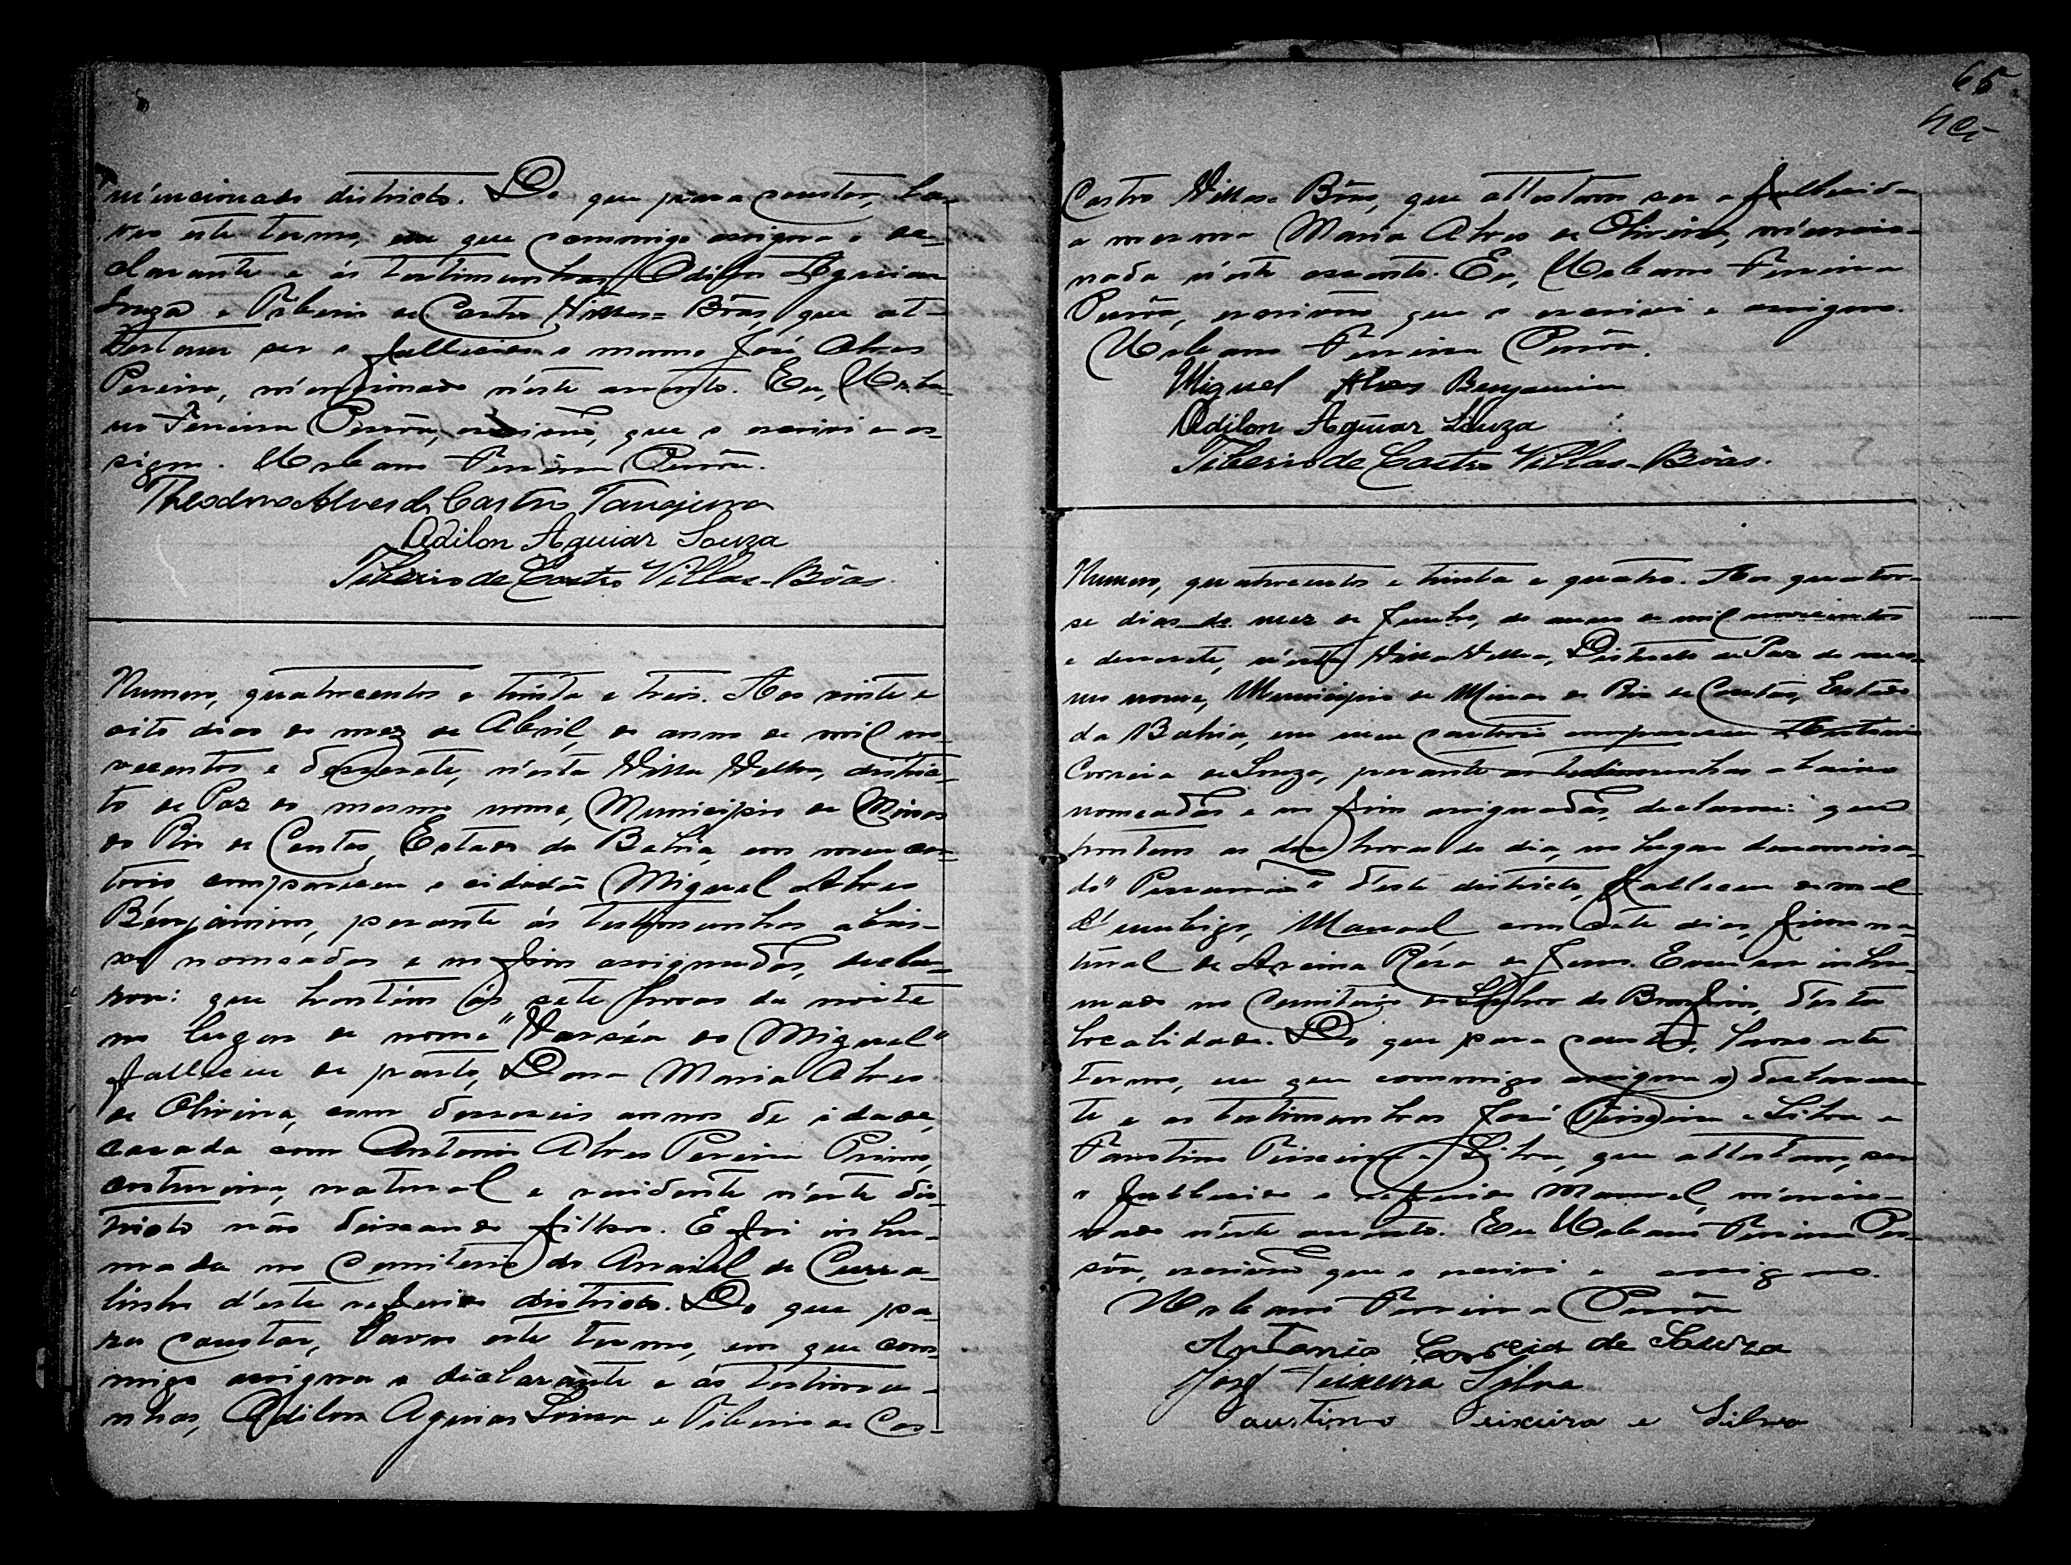 mencionado districto. Do que para constar, la-
vrei este termo, em que commigo assigna o de-
clarante e ás testimunhas Odilon Aguiar
Souza e Tiberio de Castro Villas-Bôas, que at-
testam ser o fallecido o mesmo José Alves
Pereira, mencionado n'este assento. Eu, Urba-
no Ferreira Pessôa, escrivão, que o escrevi e as-
signo. Urbano Ferreira Pessôa.
Theodoro Alves de Castro Tanajura
Odilon Aguiar Souza
Tiberio de Castro Villas-Bôas.
Numero, quatrocentos e trinta e treis. Aos vinte e
oito dias do mez de Abril, do anno de mil no-
vecentos e desesete, n'esta Villa Velha, distric-
to de Paz do mesmo nome, Municipio de Minas
do Rio de Contas, Estado da Bahia, em meu car-
torio compareceu o cidadão Miguel Alves
Benjamim, perante ás testimunhas abai-
xo nomeadas e no fim assignadas, decla-
rou: que hontém ás sete horas da noite
no lugar de nome "Varsea do Miguel"
falleceu de parto, Dona Maria Alves
de Oliveira, com deseseis annos de idade,
casada com Antonio Alves Pereira Primo,
costureira, natural e residente n'este dis-
tricto não deixando filhos. E foi inhu-
mada no Cemiterio do Arraial de Curra-
linho d'este referido districto. Do que pa-
ra constar, lavrei este termo, em que com-
migo assigna o declarante e ás testimu-
nhas, Odilon Aguiar Souza e Tiberio de Cas-
65.
Castro Villas-Bôas, que attestam ser a fallecida
a mesma Maria Alves de Oliveira, mencio-
nada n'este assento. Eu, Urbano Ferreira
Pessôa, escrivão que o escrevi e assigno.
Urbano Ferreira Pessôa.
Miguel Alves Benjamim
Odilon Aguiar Souza
Tiberio de Castro Villas-Bôas.
Numero, quatrocentos e trinta e quatro. Aos quator-
se dias do mez de Junho, do anno de mil novecentos
e desesete, n'esta Villa Velha, Districto de Paz do mes-
mo nome, Municipio de Minas do Rio de Contas, Estado
da Bahia, em meu cartorio compareceu Antonio
Correia de Souza, perante as testimunhas abaixo
nomeadas e no fim assignadas, declarou: que
hontem as dez horas do dia, no lugar denomina-
do " " d'este districto, falleceu de mal
d'umbigo, Manoel com sete dias, filho na-
tural de Rosa de Jesus. E vai ser inhu-
mado no Cemiterio do Senhor do Bomfim, d'esta
localidade. Do que para constar, lavrei este
termo, em que commigo assigna o declaran-
te e as testimunhas José Teixeira e Silva e
Faustino Teixeira e Silva, que attestam, ser
o fallecido o referido Manoel, mencio-
nado n'este assento. Eu Urbano Ferreira Pes-
sôa, escrivão que o escrevi e assigno.
Urbano Ferreira Pessôa
Antonio Correia de Souza
José Teixeira Silva
Faustino Teixeira e Silva